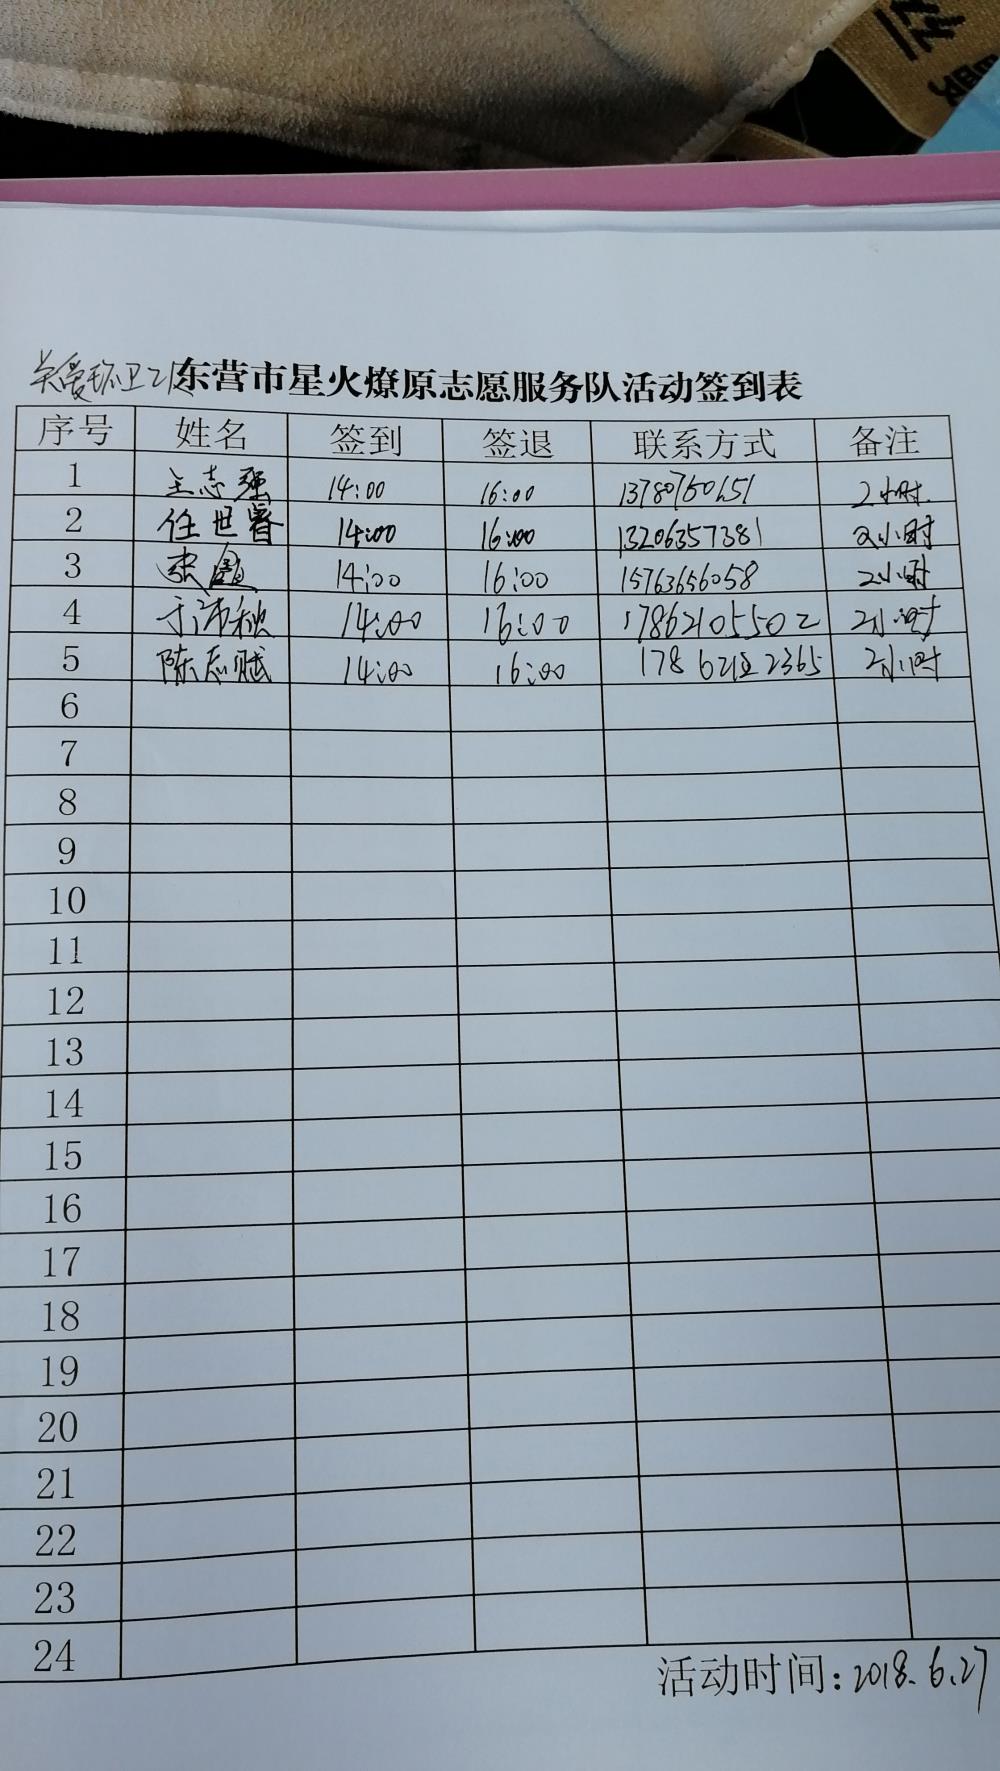 关爱环卫工人东营市星火燎原志愿服务队活动签到表
序号 姓名 签到 签退 联系方式 备注
1 王志强 14:00 16:00 2小时
2 任世睿 14:00 16:00 13206357381 2小时
3 张鑫 14:00 16:00 15763656058 2小时
4 于沛秋 14:00 16:00 17862105502 2小时
5 陈志斌 14:00 16:00 2小时
6
7
8
9
10
11
12
13
14
15
16
17
18
19
20
21
22
23
24
活动时间:2018.6.27